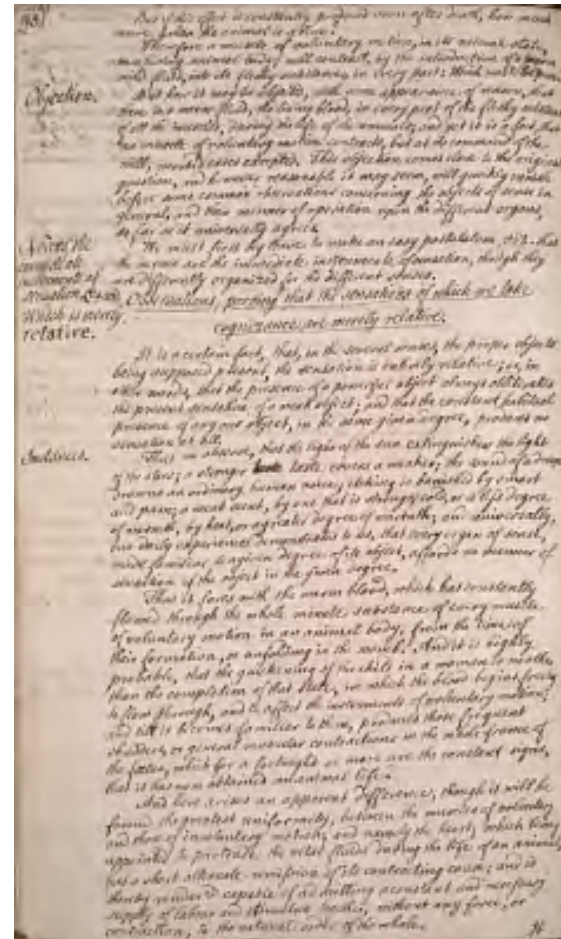 But if this effect is constantly produced soon after death, how much
more, when the animal is alive?
Therefore a muscle of voluntary motion, in its natural state,
will contract, by the introduction of a warm
mild fluid, into its fleshy substance, in every part:
Objection.
But here it may be objected, with some appearance of reason, that
there is a warm fluid, the living blood, in every part of the fleshy substance
of all the muscles, during the life of the animal; and yet it is a fact, that
no muscle of voluntary motion contracts, but at the command of the
will, excepted. This objection comes close to the original
question, and however reasonable it may seem, will quickly vanish
before some common observations concerning the objects of sense in
general, and their manner of operation upon the different organs,
so far as it universally agrees.
Nerves the
immediate
instruments of
Sensation,
Which is merely
relative.
We must first by there to make an easy postulatum, viz. that
the nerves are the immediate instruments of sensation, though they
are differently organized for the different senses.
Observations, proving that the sensations of which we take
cognizance, are merely relative.
It is a certain fact, that, in the several senses, the proper objects
being supposed present, the sensation is entirely relative; or, in
other words, that the presence of a powerful object always obliterates
the present sensation of a weak object; and that the constant habitual
presence of any one object, in the same given degree, produces no
sensation at all.
Instances.
Thus we observe, that the light of the sun extinguishes the light
of the stars; a stronger taste covers a weaker; the sound of a drum
drowns an ordinary human voice; itching is banished by smart
and pain; a weak scent, by one that is strong; cold, or a less degree
of warmth, by heat, or a greater degree of warmth; and universally,
our daily experience demonstrates to us, that every organ of sense,
made familiar to a given degree of its object, affords no manner of
sensation of the object in the given degree.
Thus it fares with the warm blood, which has constantly
flowed through the whole muscle substance of every muscle
of voluntary motion in an animal body, from the time of
their formation, or unfolding in the womb. And it is highly
probable, that the quickening of the child in a woman is no other
than the completion of that state, in which the blood begins freely
to flow through, and to affect the instruments of voluntary motion;
and till it becomes familiar to them, produces those frequent
shudders, or general muscular contractions in the whole frame of
the foetus, which for a fortnight or more are the constant signs,
that it has now obtained animal life.
And here arises an apparent difference, though it will be
found the greatest uniformity, between the muscles of voluntary
and those of involuntary motion, and namely the heart; which being
appointed to protrude the vital fluids during the life of an animal,
has a short alternate remission of its contracting cause; and is
thereby rendered capable of admitting a constant and necessary
supply of labour and stimulus without any force, or
contradiction, to the natural order of the whole.